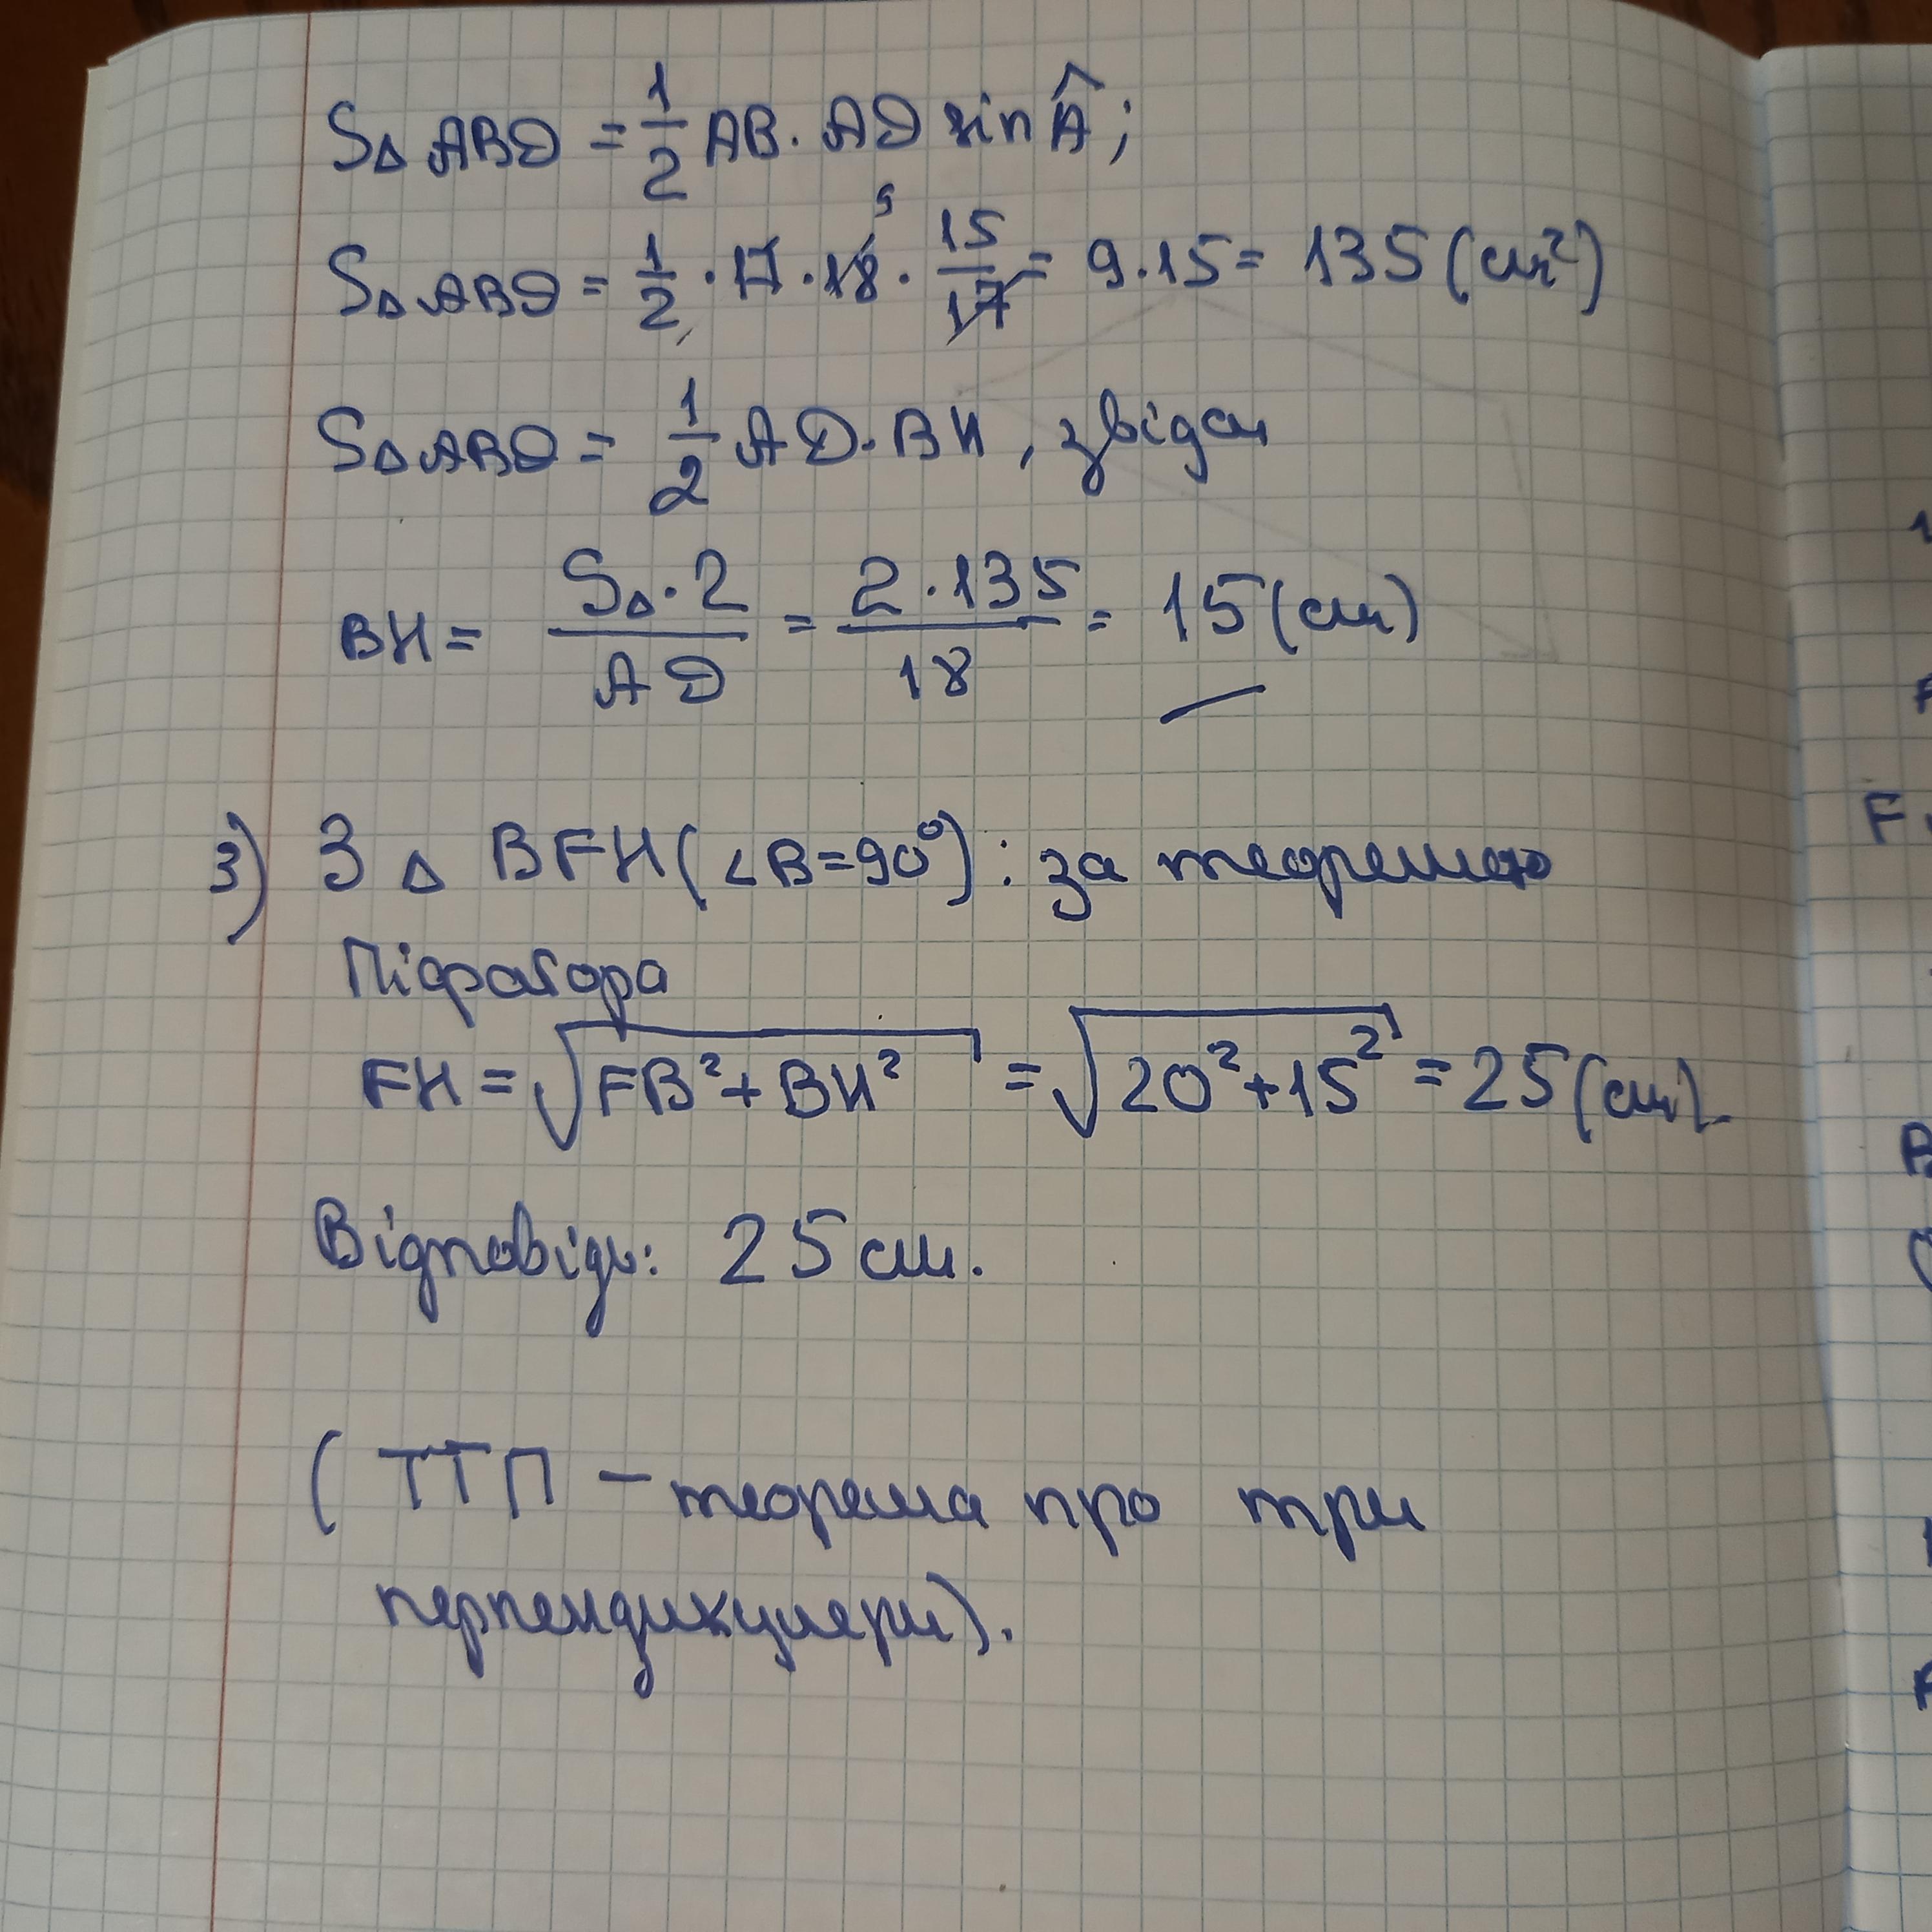 S△ABD = 1/2 AB · AD sin Â;
S△ABD = 1/2 · 17 · 18 9 · 15/17 = 9 · 15 = 135 (см²)
S△ABD = 1/2 AD · BH, звідси
BH = S△ · 2 / AD = 2 · 135 / 18 = 15 (см)
3) З △ BFH (∠B = 90°): за теоремою
Піфагора
FH = √(FB² + BH²) = √(20² + 15²) = 25 (см).
Відповідь: 25 см.
( ТТП – теорема про три
перпендикуляри).